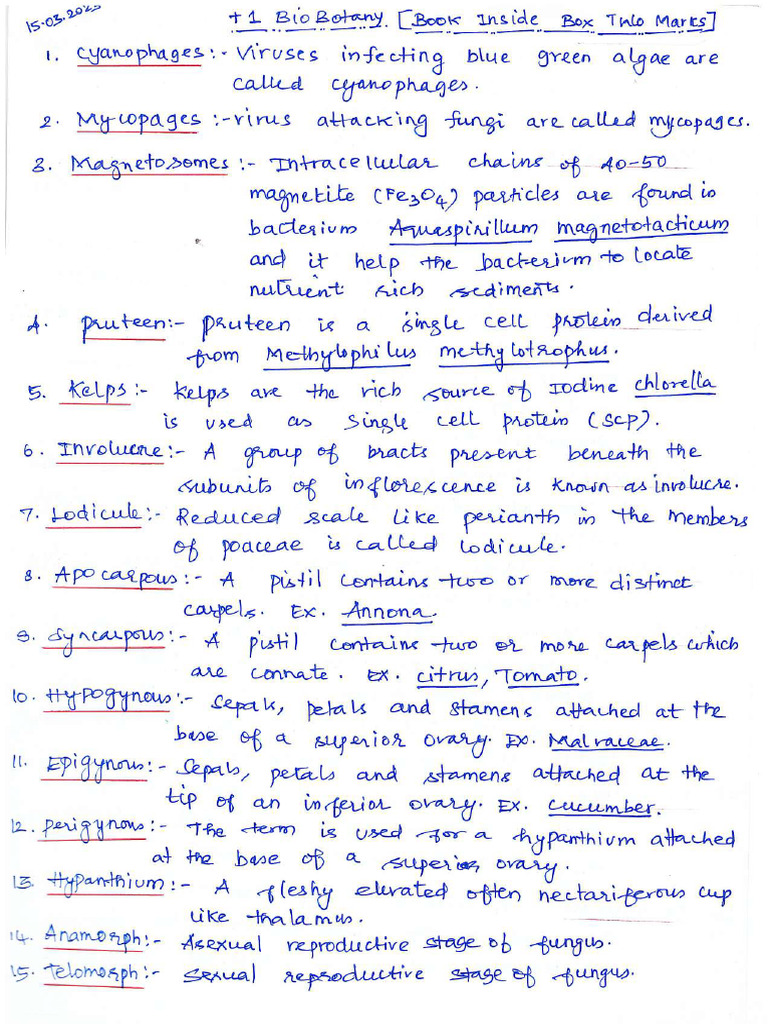 15.03.2025
+1 Bio Botany. [Book Inside Box Two Marks]
1. Cyanophages:- Viruses infecting blue green algae are
called cyanophages.
2. Mycopages :- virus attacking fungi are called mycopages.
3. Magnetosomes:- Intracellular chains of 40-50
magnetite (Fe3O4) particles are found in
bacterium Aquaspirillum magnetotacticum
and it help the bacterium to locate
nutrient rich sediments.
4. Pruteen:- Pruteen is a single cell protein derived
from Methylophilus methylotrophus.
5. Kelps:- Kelps are the rich source of Iodine chlorella
is used as single cell protein (SCP).
6. Involucre:- A group of bracts present beneath the
subunits of inflorescence is known as involucre.
7. Lodicule:- Reduced scale like perianth in the members
of poaceae is called lodicule.
8. Apocarpous:- A pistil contains two or more distinct
carpels. Ex. Annona.
9. Syncarpous:- A pistil contains two or more carpels which
are connate. Ex. citrus, Tomato.
10. Hypogynous:- Sepals, petals and stamens attached at the
base of a superior ovary. Ex. Malvaceae.
11. Epigynous:- Sepals, petals and stamens attached at the
tip of an inferior ovary. Ex. cucumber.
12. perigynous:- The term is used for a hypanthium attached
at the base of a superior ovary.
13. Hypanthium:- A fleshy elevated often nectariferous cup
like thalamus.
14. Anamorph:- Asexual reproductive stage of fungus.
15. Telomorph:- Sexual reproductive stage of fungus.